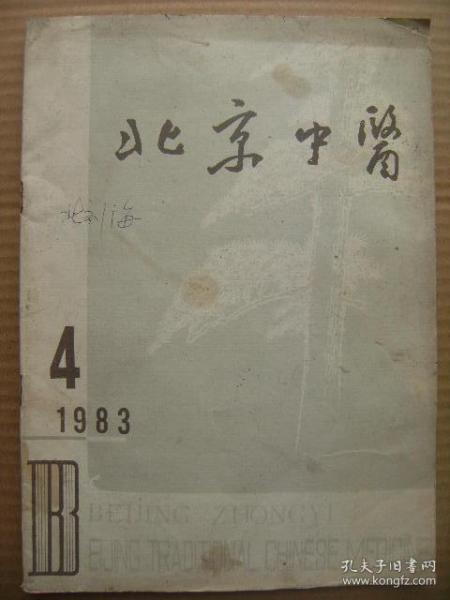 北京中醫
4
1983
B
BEIJING ZHONGYI
BEIJING TRADITIONAL CHINESE MEDICINE
孔夫子旧书网
www.kongfz.com